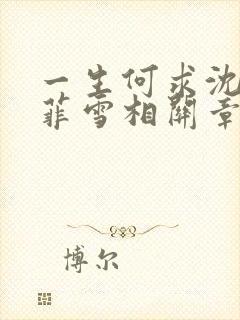 一生何求沈
菲雪相關章
博尔